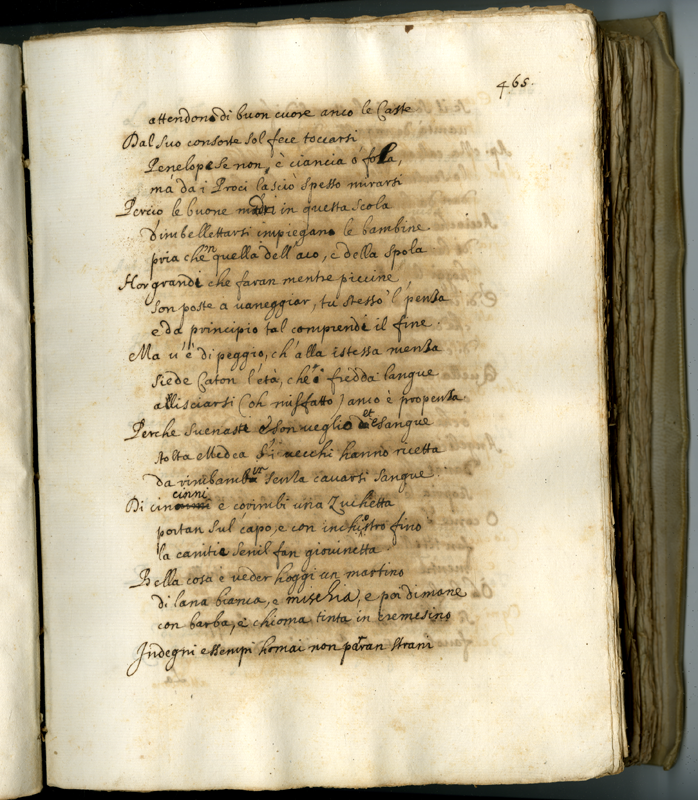 465.
attendono di buon cuore anco le Caste
Dal suo consorte sol fece toccarsi
Penelope se non, è ciancia ò fola,
ma da i Proci lasciò spesso mirarsi
Perciò le buone madri in questa scola
d'imbellettarsi impiegano le bambine
pria che 'n quella dell'aco, e della spola
Hor grandi che faran mentre piccine
son poste a vaneggiar, tu stesso 'l pensa
e da principio tal comprendi il fine.
Ma v'è di peggio, ch'alla istessa mensa
siede Caton l'età, che fredda langue
allisciarsi (oh misfatto) anco è propensa
Perche svenasti Eson veglio et esangue
stolta Medea s'i vecchi hanno ricetta
da rimbambir senza cavarsi sangue.
Di cincinni e corimbi una Zuchetta
portan sul capo, e con inchiostro fino
la canitie senil fan giovinetta.
Bella cosa è veder hoggi un martino
di lana bianca, e mischia, e poi dimane
con barba, e chioma tinta in cremesino
Indegni essempi homai non paran strani